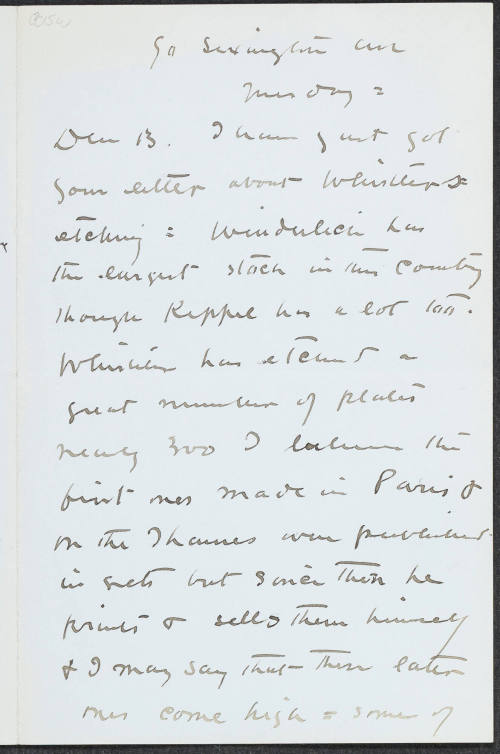 Lexington Ave
Tuesday =
Dear B. I have just got
your letter about Whistler's
etching = Wunderlich has
the largest stock in this country
though Keppel has a lot too.
Whistler has etched a
great number of plates
nearly 300 I believe the
first ones made in Paris &
on the Thames were published
in sets but since then he
prints & sells them himself
& I may say that these later
ones come high = some of